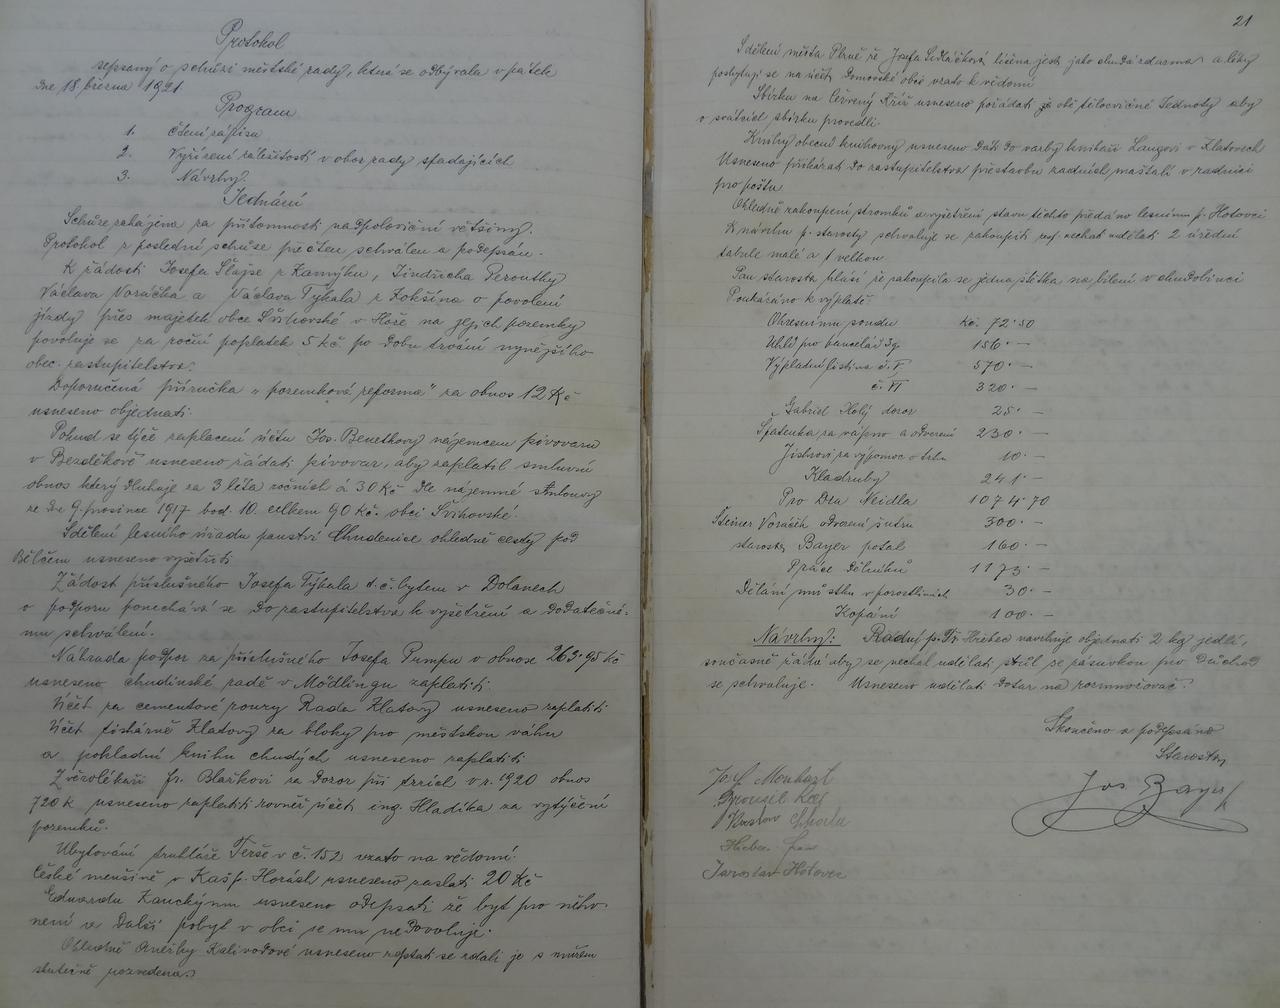 Protokol
sepsaný o schůzi městské rady, která se odbývala v pátek
dne 18. března 1921.
Program
1. Čtení zápisu
2. Vyřízení záležitostí v obor rady spadajících
3. Návrhy.
Jednání
Schůze zahájena za přítomnosti nadpoloviční většiny.
Protokol z poslední schůze přečten schválen a podepsán.
K žádosti Josefa Šlajse z Kamýku, Jindřicha Peroutky
Václava Voráčka a Václava Týkala z Lokšína o povolení
jízdy přes majetek obce Švihovské v Hoře na jejich pozemky
povoluje se za roční poplatek 5 Kč po dobu trvání nynějšího
obec. zastupitelstva.
Doporučená příručka „pozemková reforma" za obnos 12 Kč
usneseno objednati.
Pokud se týče zaplacení účtu Jos. Benetkový nájemcem pivovaru
v Bezděkově usneseno žádati pivovar, aby zaplatil smluvní
obnos který dluhuje za 3 léta ročních á 30 Kč dle nájemné smlouvy
ze dne 9. prosince 1917 bod. 10. celkem 90 Kč. obci Švihovské.
Sdělení lesního úřadu panství Chudenice ohledně cesty pod
Bělčem usneseno vyšetřiti
Žádost příslušného Josefa Týkala t. č. bytem v Dolanech
o podporu ponechává se do zastupitelstva k vyšetření a dodatečné-
mu schválení.
Náhrada podpor za příslušného Josefa Pumpu v obnose 263.95 Kč
usneseno chudinské radě v Mödlingu zaplatiti.
Účet za cementové roury Rada Klatovy usneseno zaplatiti
Účet tiskárně Klatovy za bloky pro městskou váhu
a pokladní knihu chudých usneseno zaplatiti
Zvěrolékaři Fr. Blažkovi za dozor při trzích v r. 1920 obnos
720 K usneseno zaplatiti rovněž účet ing. Hladíka za vytýčení
pozemků.
Ubytování truhláře Terše v č. 152 vzato na vědomí.
České menšině v Kašp. Horách usneseno zaslati 20 Kč
Eduardu Kauckýmu usneseno odepsati že byt pro něho
není a další pobyt v obci se mu nedovoluje.
Ohledně Anežky Kalivodové usneseno zeptati se zdali je s mužem
skutečně rozvedena.
21
Sdělení města Plzně že Josefa Sedláčková léčena jest jako chudá zdarma a léky
poskytují se na účet domovské obce vzato k vědomí
Sbírku na Červený Kříž usneseno pořádati obě tělocvičné Jednoty aby
o svátcích sbírku provedli.
Knihy obecní knihovny usneseno dáti do vazby knihaři Langovi v Klatovech
Usneseno přikázati do zastupitelstva přestavbu radních maštalí v radnici
pro poštu
Ohledně zakoupení stromků a vyšetření stavu těchto předáno lesnímu p. Hotovci
K návrhu p. starosty schvaluje se zakoupiti resp. nechat udělati 2 úřední
tabule malé a 1 velkou
Pan starosta hlásí že zakoupila se jedna štětka na bílení v chudobinci
Poukázáno k výplatě
Okresnímu soudu Kč. 72.50
Uhlí pro kancelář 3q. 156.—
Výplatní listina č. V 570.—
č. VI 320.—
„ Gabriel Holý dozor 25.—
Špatenka za vápno a odvezení 230.—
Jíchovi za výpomoc o trhu 10.—
Kladruby 241.—
Pro Dra Neidla 1074.70
Steiner Voráček odvození sutru 300.—
starosta Bayer potah 160.—
Práce dělníků 1173.—
Dělání můstku v porostlinách 30.—
Kopání 100.—
Návrhy: Radní p. Fr. Hřebec navrhuje objednati 2 kg jedlí,
současně žádá aby se nechal udělati stůl se zásuvkou pro důchod
se schvaluje. Usneseno udělati dotaz na rozmnožovač.
Skončeno a podepsáno
Starosta
Jos Bayer
Josef Mouhart
Brousil Karel
Václav
Hřebec Fran
Jaroslav Hotovec